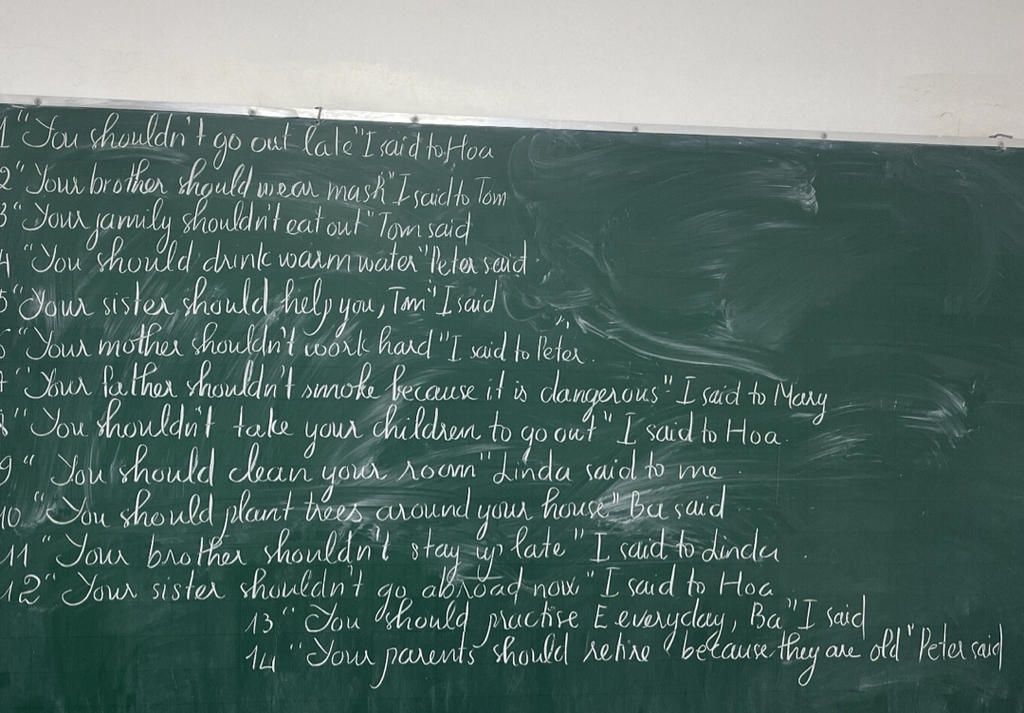 1 "You shouldn't go out late" I said to Hoa
2 "Your brother should wear mask" I said to Tom
3 "Your family shouldn't eat out" Tom said
4 "You should drink warm water" Peter said.
5 "Your sister should help you, Tom" I said
6 "Your mother shouldn't work hard" I said to Peter.
7 "Your father shouldn't smoke because it is dangerous" I said to Mary
8 "You shouldn't take your children to go out" I said to Hoa.
9 "You should clean your room" Linda said to me.
10 "You should plant trees around your house" Ba said
11 "Your brother shouldn't stay up late" I said to Linda.
12 "Your sister shouldn't go abroad now" I said to Hoa
13 "You should practise E everyday, Ba" I said
14 "Your parents should retire because they are old" Peter said